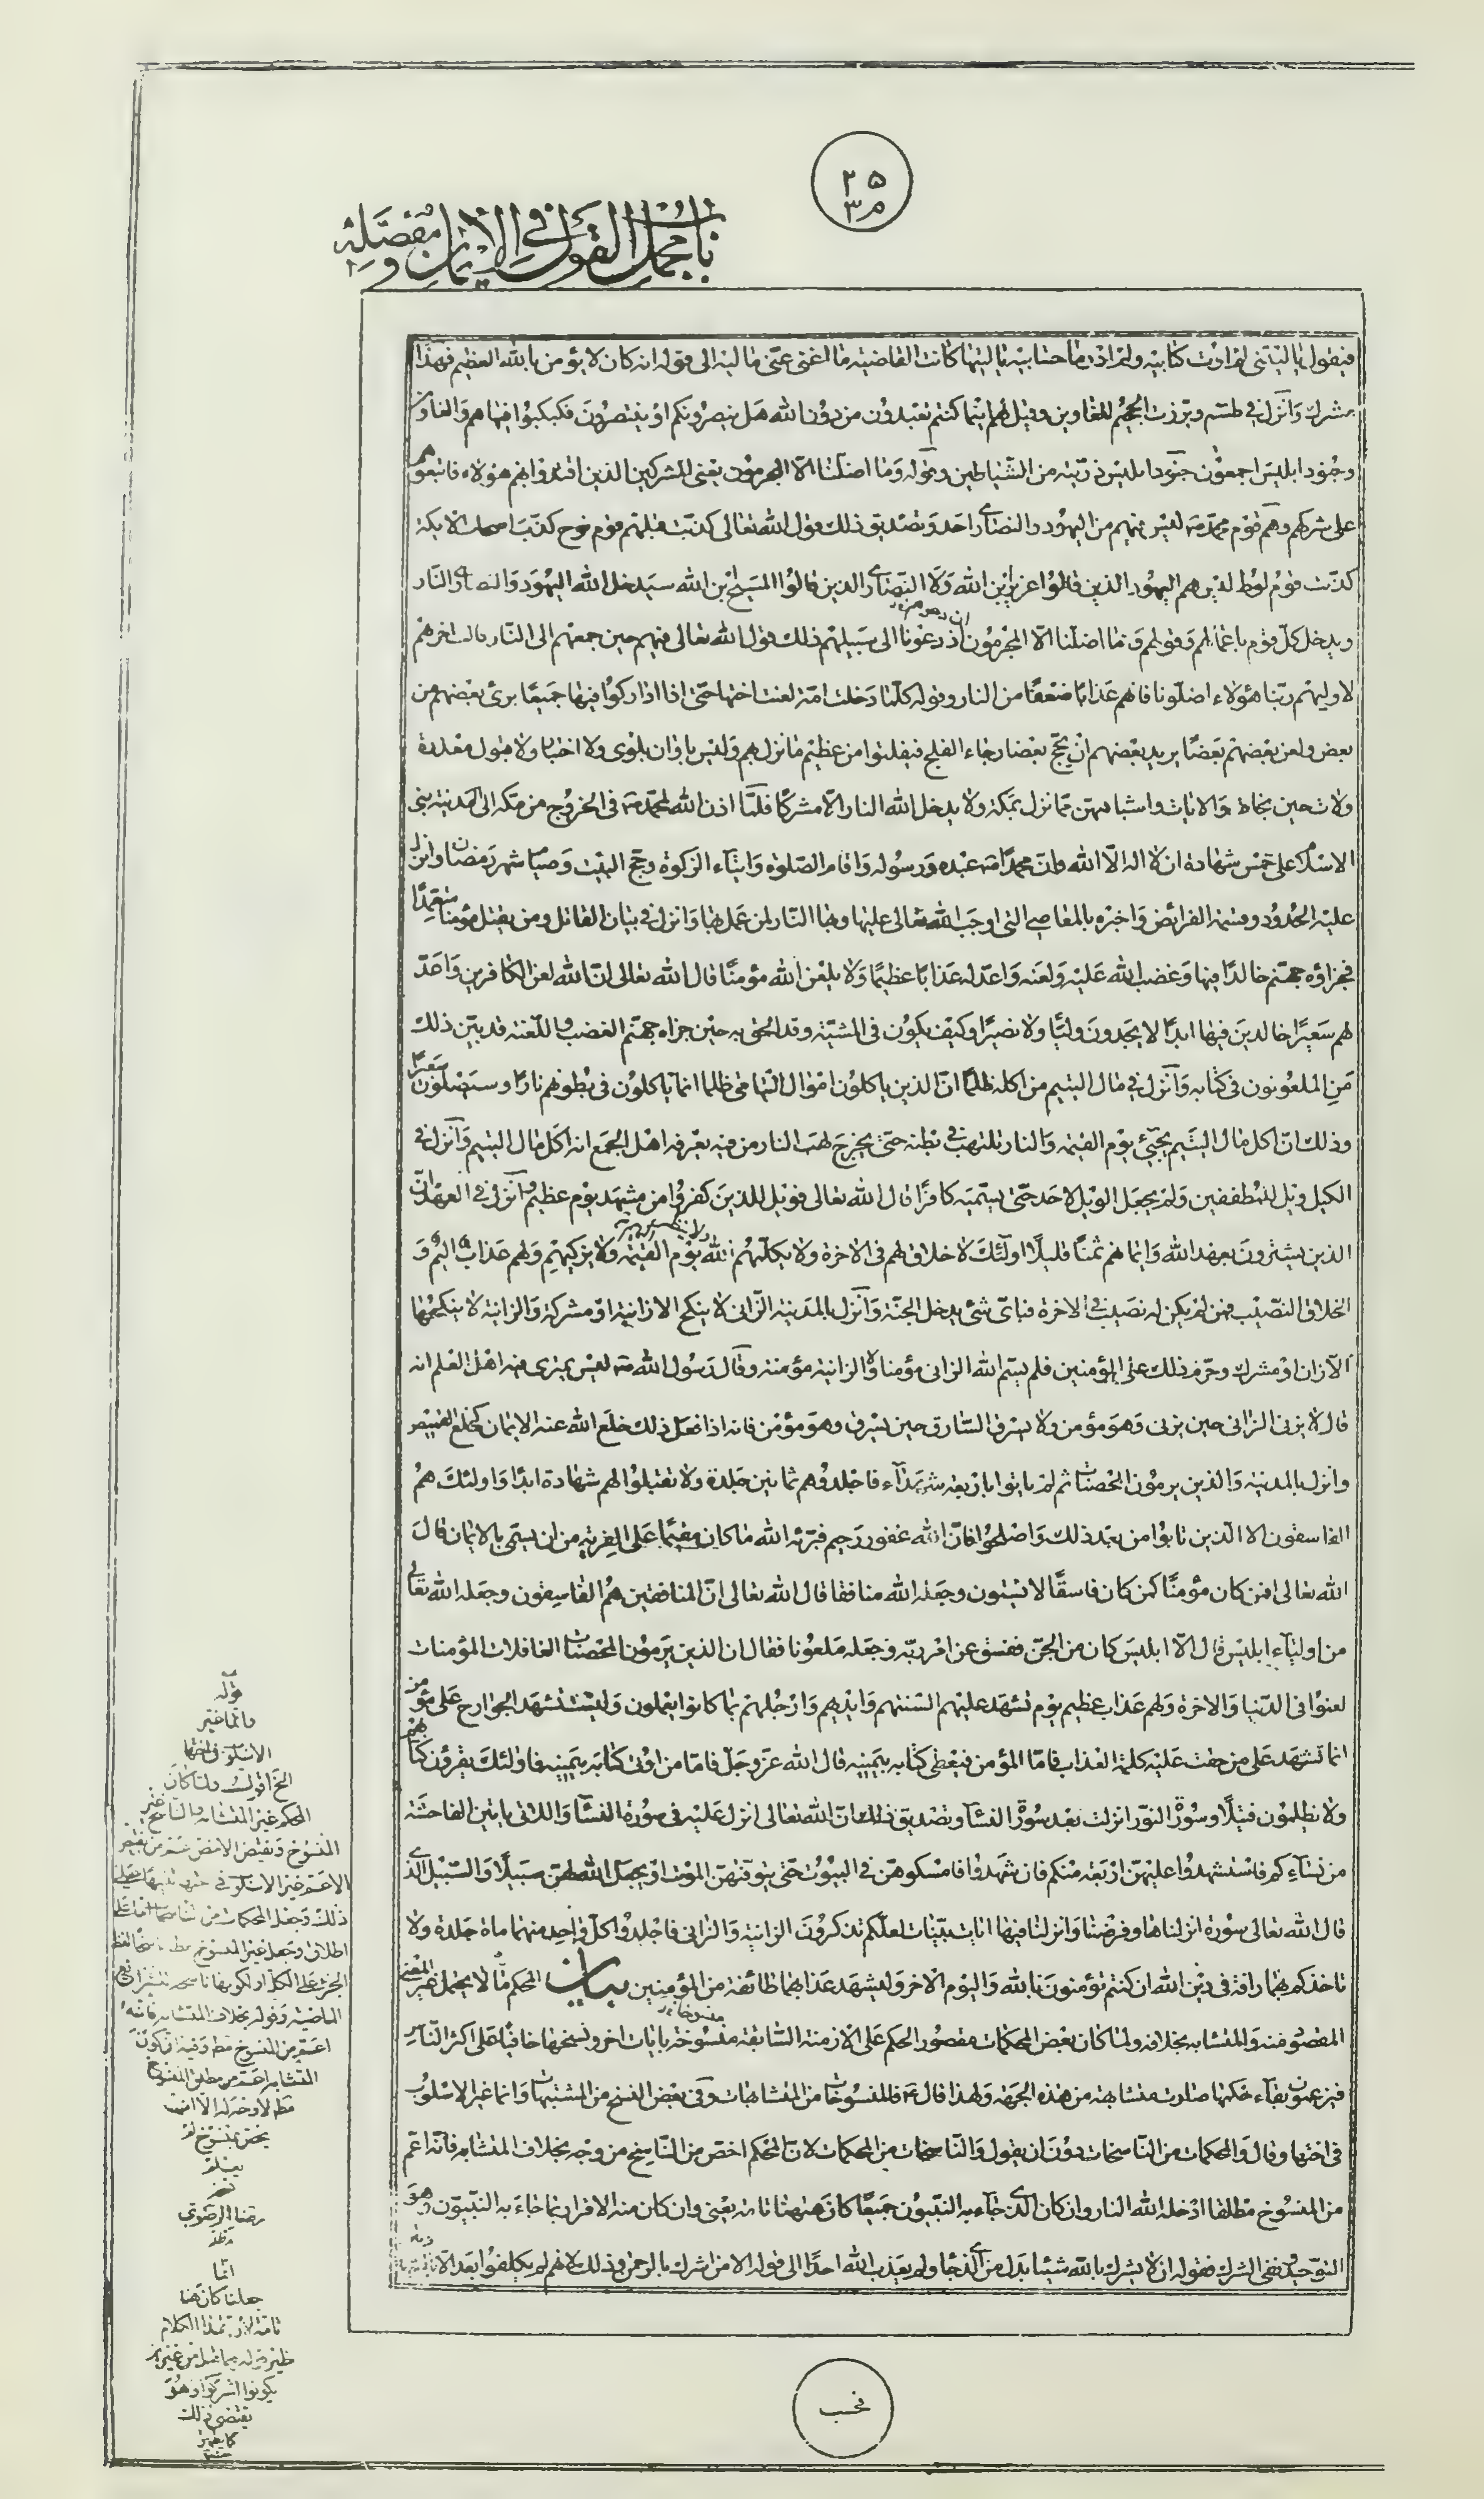 ٢٥
٣م
باب مجمل القول في الايمان ومفصله
فيقول يا ليتني لم اوت كتابيه ولم ادر ما حسابيه يا ليتها كانت القاضيه ما اغنى عني ماليه الى قوله انه كان لا يؤمن بالله العظيم فهذا
مشرك وَانزل في طسم وبرزت الجحيم للغاوين وقيل لهم اينما كنتم تعبدون من دون الله هل ينصرونكم او ينتصرون فكبكبوا فيها هم والغاون
وجنود ابليس اجمعون جنود ابليس ذريته من الشياطين وقوله وَما اضلنا الا المجرمون يعني المشركين الذين اقتدوا بهم هؤلاء فاتبعوهم
على شركهم وهم قوم محمد ص ليس فيهم من اليهود والنصارى احد وتصديق ذلك قول الله تعالى كذبت قبلهم قوم نوح كذب اصحاب الايكة
كذبت قوم لوط ليس هم اليهود الذين قالوا عزير ابن الله وَلا النصارى الذين قالوا المسيح ابن الله سيدخل الله اليهود والنصارى النار
ويدخل كل قوم باعمالهم وقولهم وَما اضلنا الا المجرمون اذ دعونا الى سبيلهم ذلك قول الله تعالى فيهم حين جمعهم الى النار قالت اخرهم
لاوليهم ربنا هؤلاء اضلونا فاتهم عذابا ضعفا من النار وقوله كلما دخلت امة لعنت اختها حتى اذا اداركوا فيها جميعا برئ بعضهم من
بعض ولعن بعضهم بعضا يريد بعضهم ان يحج بعضا رجاء الفلج فيفلتوا من عظيم ما نزل بهم وليس باوان بلوى ولا اختبار ولا قبول معذرة
ولات حين نجاة والايات واشباههن مما نزل بمكة ولا يدخل الله النار الا مشركا فلما اذن الله لمحمد ص في الخروج من مكه الى المدينة بنى
الاسلام على خمس شهادة ان لا اله الا الله وان محمدا ص عبده ورسوله واقام الصلوة وايتاء الزكوة وحج البيت وصيام شهر رمضان وانزل
عليه الحدود وقسمة الفرائض واخبره بالمعاصي التي اوجب الله تعالى عليها وبها النار لمن عمل بها وانزل في بيان القاتل ومن يقتل مؤمنا متعمدا
فجزاؤه جهنم خالدا فيها وغضب الله عليه ولعنه واعد له عذابا عظيما ولا يلعن الله مؤمنا قال الله تعالى ان الله لعن الكافرين واعد
لهم سعيرا خالدين فيها ابدا لا يجدون وليا ولا نصيرا وكيف يكون في المشية وقد الحق به حين جزاه جهنم الغضب واللعنة قد بين ذلك
من الملعونون في كتابه وانزل في مال اليتيم من اكله ظلما ان الذين ياكلون اموال اليتامى ظلما انما ياكلون في بطونهم نارا وسيصلون سعيرا
وذلك ان اكل مال اليتيم يجيئ يوم القيمه والنار تلتهب في بطنه حتى يخرج لهب النار من فيه يعرفه اهل الجمع انه اكل مال اليتيم وانزل في
الكيل ويل للمطففين ولم يجعل الويل لاحد حتى يسميه كافرا قال الله تعالى فويل للذين كفروا من مشهد يوم عظيم وانزل في العهد ان
الذين يشترون بعهد الله وايمانهم ثمنا قليلا اولئك لا خلاق لهم في الاخرة ولا يكلمهم الله يوم القيمه ولا يزكيهم ولهم عذاب اليم و
الخلاق النصيب فمن لم يكن له نصيب في الاخرة فباى شئ يدخل الجنة وانزل بالمدينة الزاني لا ينكح الا زانية او مشركة والزانية لا ينكحها
الا زان او مشرك وحرم ذلك على المؤمنين فلم يسم الله الزاني مؤمنا ولا الزانية مؤمنة وقال رسول الله ص ليس يمترى فيه اهل العلم انه
قال لا يزني الزاني حين يزني وهو مؤمن ولا يسرق السارق حين يسرق وهو مؤمن فانه اذا فعل ذلك خلع الله عنه الايمان كخلع القميص
وانزل بالمدينة والذين يرمون المحصنات ثم لم ياتوا باربعة شهداء فاجلدوهم ثمانين جلدة ولا تقبلوا لهم شهادة ابدا واولئك هم
الفاسقون الا الذين تابوا من بعد ذلك واصلحوا فان الله غفور رحيم فبرئه الله ما كان مقيما على الفرية من ان يسمى بالايمان قال
الله تعالى افمن كان مؤمنا كمن كان فاسقا لا يستون وجعله الله منافقا قال الله تعالى ان المنافقين هم الفاسقون وجعله الله تعالى
من اولياء ابليس قال الا ابليس كان من الجن ففسق عن امر ربه وجعله ملعونا فقال ان الذين يرمون المحصنات الغافلات المؤمنات
لعنوا في الدنيا والاخرة ولهم عذاب عظيم يوم تشهد عليهم السنتهم وايديهم وارجلهم بما كانوا يعملون وليست تشهد الجوارح على مؤمن
انما تشهد على من حقت عليه كلمة العذاب فاما المؤمن فيعطى كتابه بيمينه قال الله عز وجل فاما من اوتى كتابه بيمينه فاولئك يقرؤن كتابهم
ولا يظلمون فتيلا وسورة النور انزلت بعد سورة النساء وتصديق ذلك ان الله تعالى انزل عليه في سورة النساء واللاتي ياتين الفاحشة
من نسائكم فاستشهدوا عليهن اربعة منكم فان شهدوا فامسكوهن في البيوت حتى يتوفيهن الموت او يجعل الله لهن سبيلا والسبيل الذى
قال الله تعالى سورة انزلناها وفرضناها وانزلنا فيها ايات بينات لعلكم تذكرون الزانية والزاني فاجلدوا كل واحد منهما مأة جلدة ولا
تاخذكم بهما رافة في دين الله ان كنتم تؤمنون بالله واليوم الاخر وليشهد عذابهما طائفة من المؤمنين بيان المحكم ما لا يحتمل غير المعنى
المقصود منه والمتشابه بخلافه ولما كان بعض المحكمات مقصور الحكم على الازمنة السابقة منسوخة بايات اخر ونسخها خافيا على اكثر الناس
فيزعمون بقاء حكمها صارت متشابهة من هذه الجهة ولهذا قال ع فالمنسوخات من المتشابهات وفي بعض النسخ من المشتبهات وانما غير الاسلوب
في اختها وقال والمحكمات من الناسخات دون ان يقول والناسخات من المحكمات لان المحكم اخص من الناسخ من وجه بخلاف المتشابه فانه اعم
من المنسوخ مطلقا ادخله الله النار وان كان الذى جاء به النبيون جميعا كان ههنا تامة يعني وان كان منه الاقرار بما جاء به النبيون وهو
التوحيد ونفي الشرك فقوله ان لا يشرك بالله شيئا بدل من الذى جاء ولم يعذب الله احدا الى قوله الا من اشرك بالرحمن وذلك لانهم لم يكلفوا بعد الا
قوله
وانما غير
الاسلوب في اختها
المحكم غير المتشابه والناسخ غير
المنسوخ ونقيض الاخص
المتشابه اعم من مطلق المنسوخ
انما
جعلنا كان ههنا
تامة
يقتضي ذلك
فخب